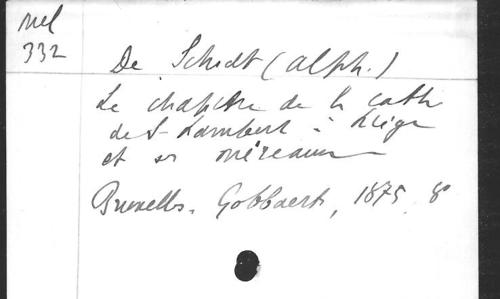 Mel
332
De Schodt (Alph.)
Le chapitre de la cath
de St Lambert à Liège
et ses méreaux
Bruxelles. Gobbaerts, 1875 8°